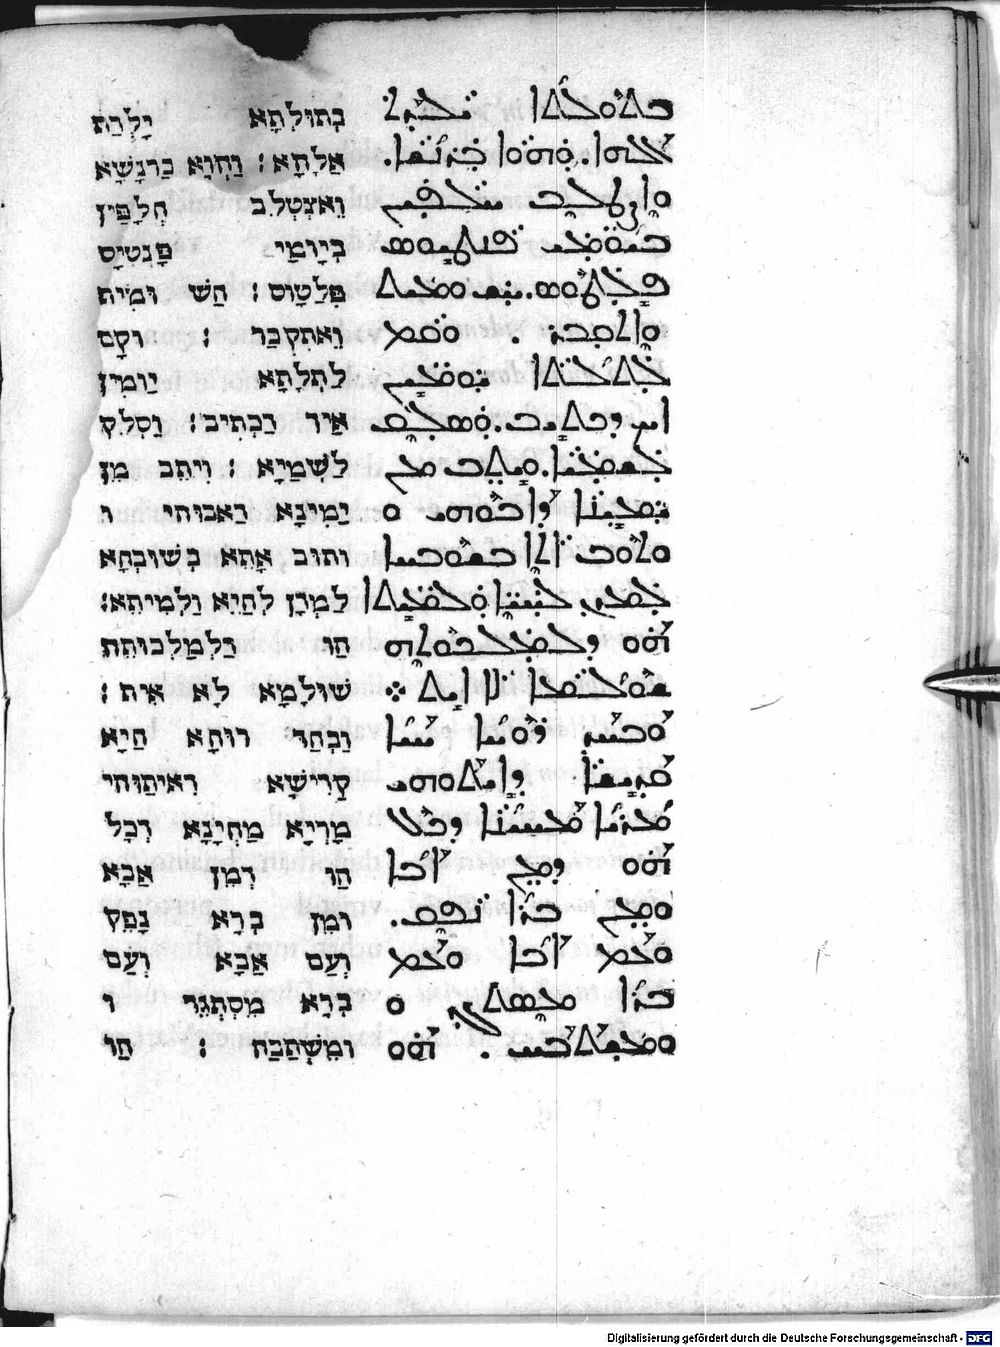 ܒܬܘܠܬܐ ܝܠܕܬ
ܐܠܗܐ. ܘܗܘܐ ܒܪܢܫܐ.
ܘܐܨܛܠܒ ܚܠܦܝܢ
ܒܝܘܡܝ ܦܢܛܝܘܣ
ܦܝܠܛܘܣ. ܚܫ ܘܡܝܬ
ܘܐܬܩܒܪ . ܘܩܡ
ܠܬܠܬܐ ܝܘܡܝܢ
ܐܝܟ ܕܟܬܝܒ. ܘܣܠܩ
ܠܫܡܝܐ. ܘܝܬܒ ܡܢ
ܝܡܝܢܐ ܕܐܒܘܗܝ ܘ
ܘܬܘܒ ܐܬܐ ܒܫܘܒܚܐ
ܠܡܕܢ ܠܚܝܐ ܘܠܡܝܬܐ
ܗܘ ܕܠܡܠܟܘܬܗ
ܫܘܠܡܐ ܠܐ ܐܝܬ ܀
ܘܒܚܕ ܪܘܚܐ ܚܝܐ
ܩܕܝܫܐ ܕܐܝܬܘܗܝ
ܡܪܝܐ ܡܚܝܢܐ ܕܟܠ
ܗܘ ܕܡܢ ܐܒܐ
ܘܡܢ ܒܪܐ ܢܦܩ.
ܘܥܡ ܐܒܐ ܘܥܡ
ܒܪܐ ܡܣܬܓܕ ܘ
ܘܡܫܬܒܚ . ܗܘ
בתולתא ילדת
אלהא: והוא ברנשא
ואצטלב חלפין
ביומי פנטיס
פלטוס: חש ומית
ואתקבר : וקם
לתלתא יומין
איך דכתיב: וסלק
לשמיא : ויתב מן
ימינא דאבוהי ו
ותוב אתא בשובחא
למדן לחיא ולמיתא:
הו דלמלכותה
שולמא לא אית :
ובחד רוחא חיא
קדישא דאיתוהי
מריא מחינא דכל
הו דמן אבא
ומן ברא נפק
ועם אבא ועם
ברא מסתגד ו
ומשתבח : הו
Digitalisierung gefördert durch die Deutsche Forschungsgemeinschaft - DFG